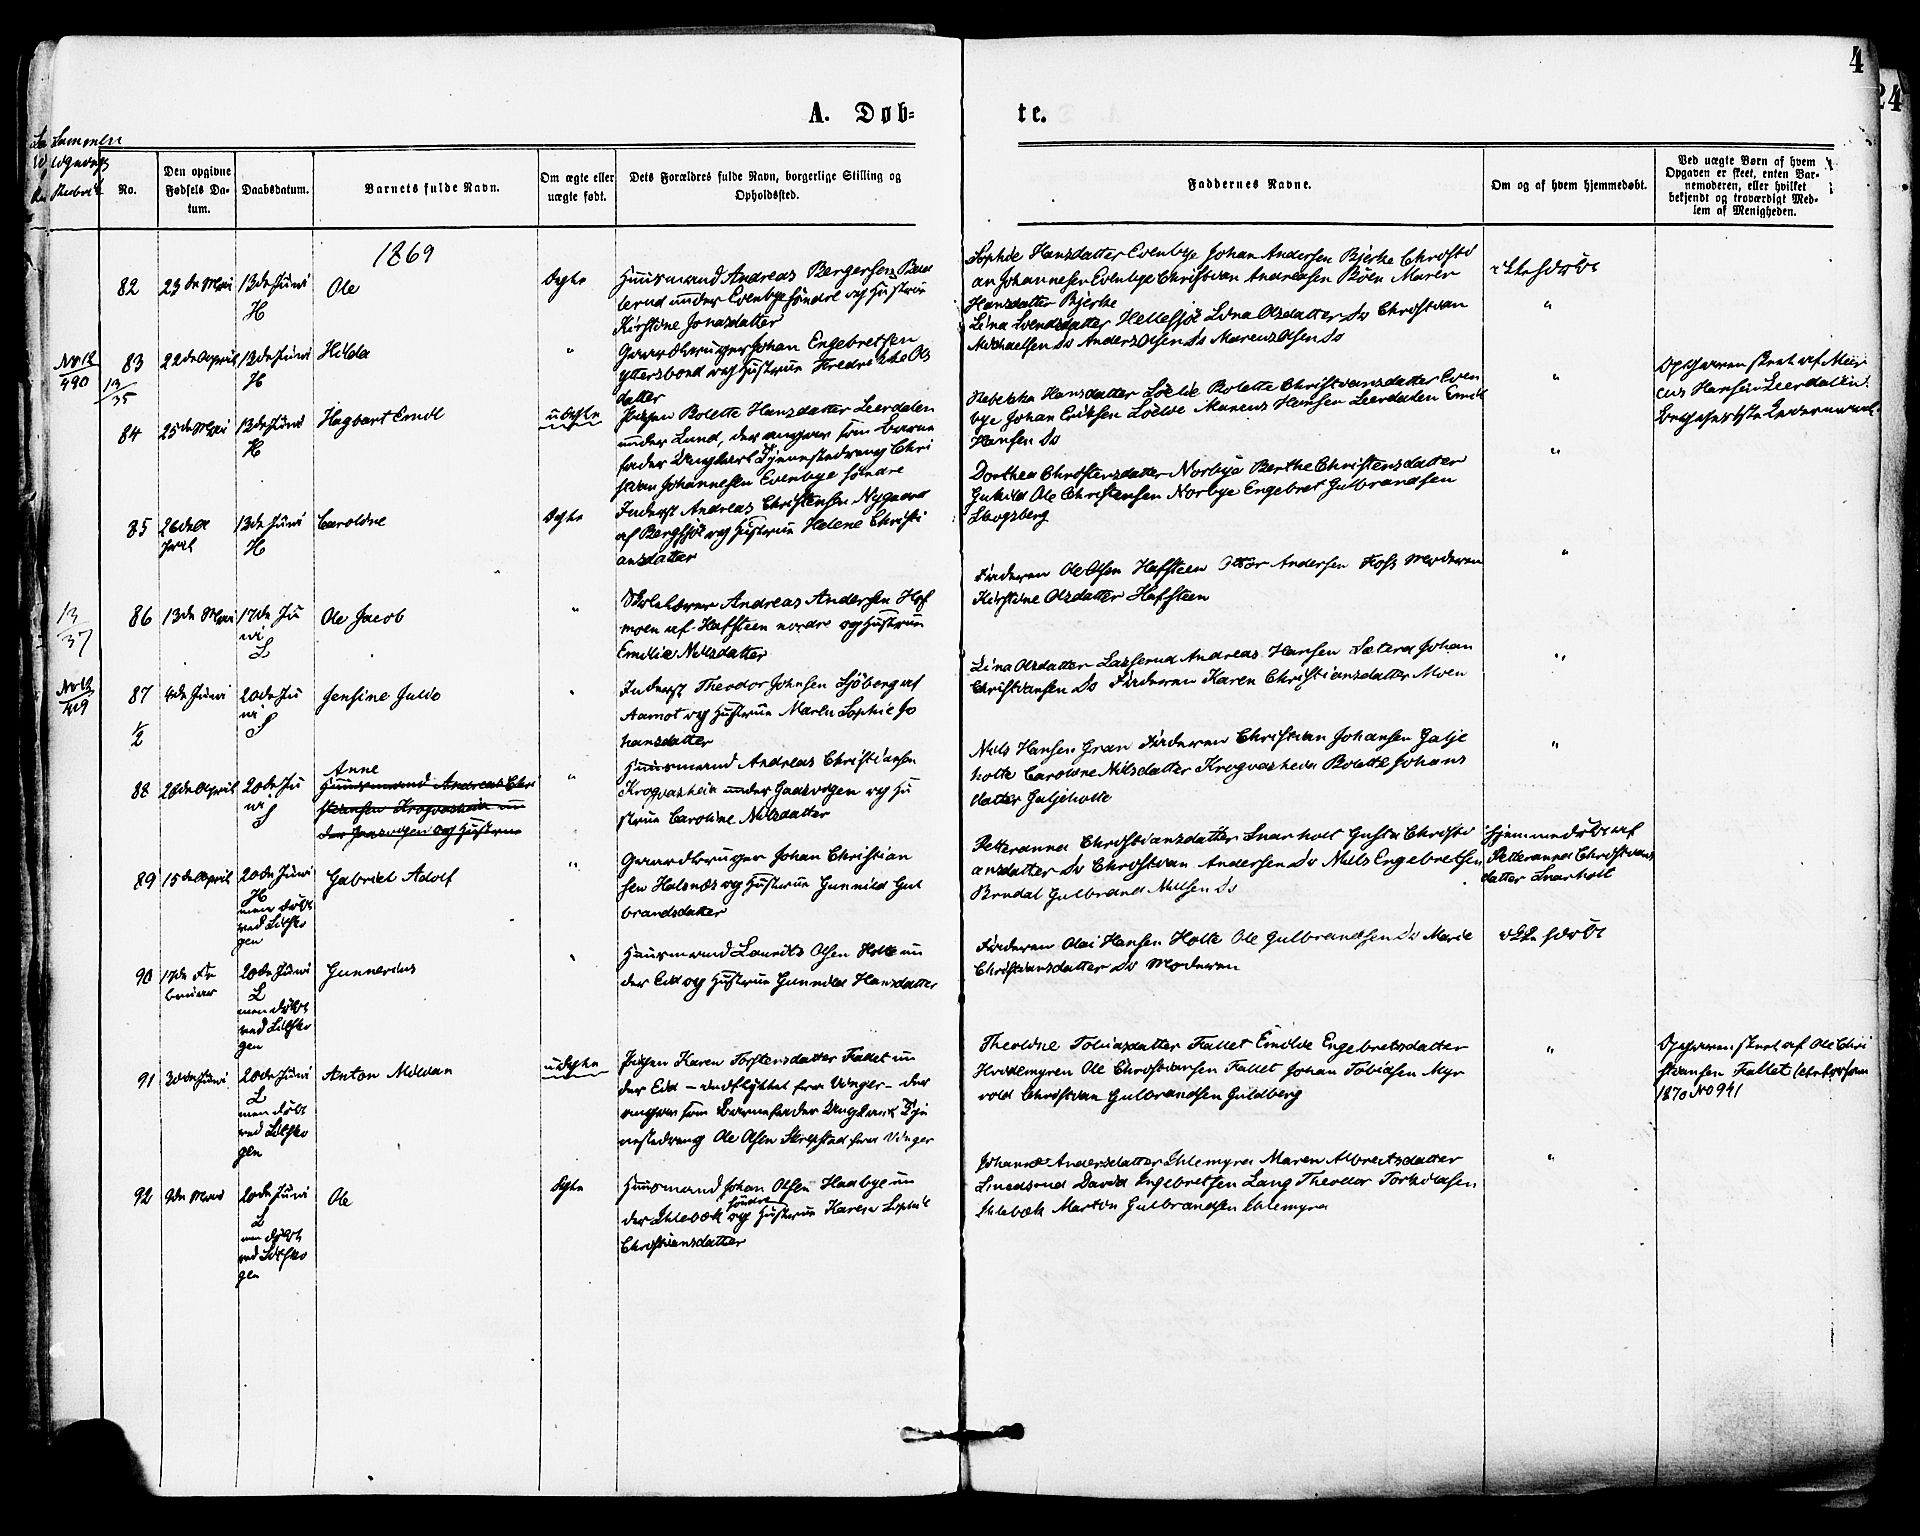 4
24
A. Døb-
te.
No.
Den opgivne
Fødsels Da-
tum.
Daabsdatum.
Barnets fulde Navn.
Om ægte eller
uægte født.
Dets Forældres fulde Navn, borgerlige Stilling og
Opholdssted.
Faddernes Navne.
Om og af hvem hjemmedøbt.
Ved uægte Børn af hvem
Opgaven er skeet, enten Bar-
nemoderen, eller hvilket
bekjendt og troværdigt Med-
lem af Menigheden.
1869
82
23de Mai
13de Juni
H
Ole
Ægte
Huusmand Andreas Bergersen
under Evenbye søndre og Hustrue
Kirstine Jonasdatter
Sophie Hansdatter Evenbye Johan Andersen Bjerke Christi
an Johannesen Evenbye Christian Andreasen Böen Maren
Hansdatter Bjerke
83
22de April
13de Juni
H
Hilda
"
Gaardbruger Johan Engebretsen
og Hustrue Fredrikke Ols
datter
Lina Svendsdatter Hellesjöe Lina Olsdatter Do Christian
Michaelsen Do Anders Olsen Do Marcus Olsen Do
"
No 12
490
13
35
84
25de Mai
13de Juni
H
Hagbart Emil
uægte
Pigen Bolette Hansdatter Leerdalen
under Lund, der angav som Barne
fader Ungkarl Tjenestedreng Chri
stian Johannesen Evenbye söndre
Rebekka Hansdatter Bolette Christiansdatter Even
bye Johan Eriksen Marcus Hansen Leerdalen Emil
Hansen Do
"
Opgaven skeet af Mar
cus Hansen Leerdalen.
85
26de A
pril
13de Juni
H
Caroline
Ægte
Inderst Andreas Christensen Nygaard
af Bergsjöe og Hustrue Helene Christi
ansdatter
Dorthea Christensdatter Norbye Berthe Christensdatter
Gukild Ole Christensen Norbye Engebret Gulbrandsen
Skogsberg
"
13
37
86
13de Mai
17de Ju
ni
L
Ole Jacob
"
Skolelærer Andreas Andersen Hof
moen af Hafsteen nordre og Hustrue
Emilie Nilsdatter
Faderen Ole Olsen Hafsteen Andersen Foss Moderen
Kirstine Olsdatter Hafsteen
"
No 12
419
87
4de Juni
20de Ju
ni
S
Jensine Julie
"
Inderst Theodor Johnsen Sjöberg af
Aamot og Hustrue Maren Sophie Jo
hansdatter
Lina Olsdatter Lasserud Andreas Hansen Sætera Johan
Christiansen Do Faderen Karen Christiansdatter Moen
"
1/2
88
28de April
20de Ju
ni
S
Anne
Huusmand Andreas Chri
stiansen Krogvasheia un
der Gaasvogen og Hustrue
"
Huusmand Andreas Christiansen
Krogvasheia under Gaasvogen og Hu
strue Caroline Nilsdatter
Nils Hansen Gran Faderen Christian Johansen Galje
holte Caroline Nilsdatter Krogvasheia Bolette Johans
datter Galjeholte
"
89
15de April
20de Juni
H
men døbt
ved Lilsko
gen
Gabriel Adolf
"
Gaardbruger Johan Christian
sen Halsnæs og Hustrue Gunnild Gul
brandsdatter
Petteranna Christiansdatter Snarholt Gusta Christi
ansdatter Do Christian Andersen Do Nils Engebretsen
Brudal Gulbrand Nilsen Do
Hjemmedöbt af
Petteranna Christians
datter Snarholt
90
17de Fe
bruar
20de Juni
L
men døbt
ved Lilsko
gen
Gunnerius
"
Huusmand Laurits Olsen Holte un
der Eid og Hustrue Gunnild Hansdatter
Faderen Olai Hansen Holte Ole Gulbrandsen Do Marie
Christiansdatter Do Moderen
91
30de Juni
20de Juni
L
men døbt
ved Lilsko
gen
Anton Milian
uægte
Pigen Karen Torstensdatter Fallet un
der Eid – indflyttet fra Vinger – der
angav som Barnefader Ungkarl Tje
nestedreng Ole Olsen Skrepstad fra Vinger
Theoline Tobiasdatter Fallet Emilie Engebretsdatter
Ole Christiansen Fallet Johan Tobiasen Myr
vold Christian Gulbrandsen Guldberg
"
Opgaven skeet af Ole Chri
stiansen Fallet
1870 No 94
92
9de Mai
20de Juni
L
men døbt
ved Lilsko
gen
Ole
Ægte
Huusmand Johan Olsen Haabye un
der Ihlebæk søndre og Hustrue Karen Sophie
Christiansdatter
Johanne Andersdatter Ihlemyra Maren Albretsdatter
David Engebretsen Lang Theodor Torkildsen
Ihlebæk Martin Gulbrandsen Ihlemyra
"